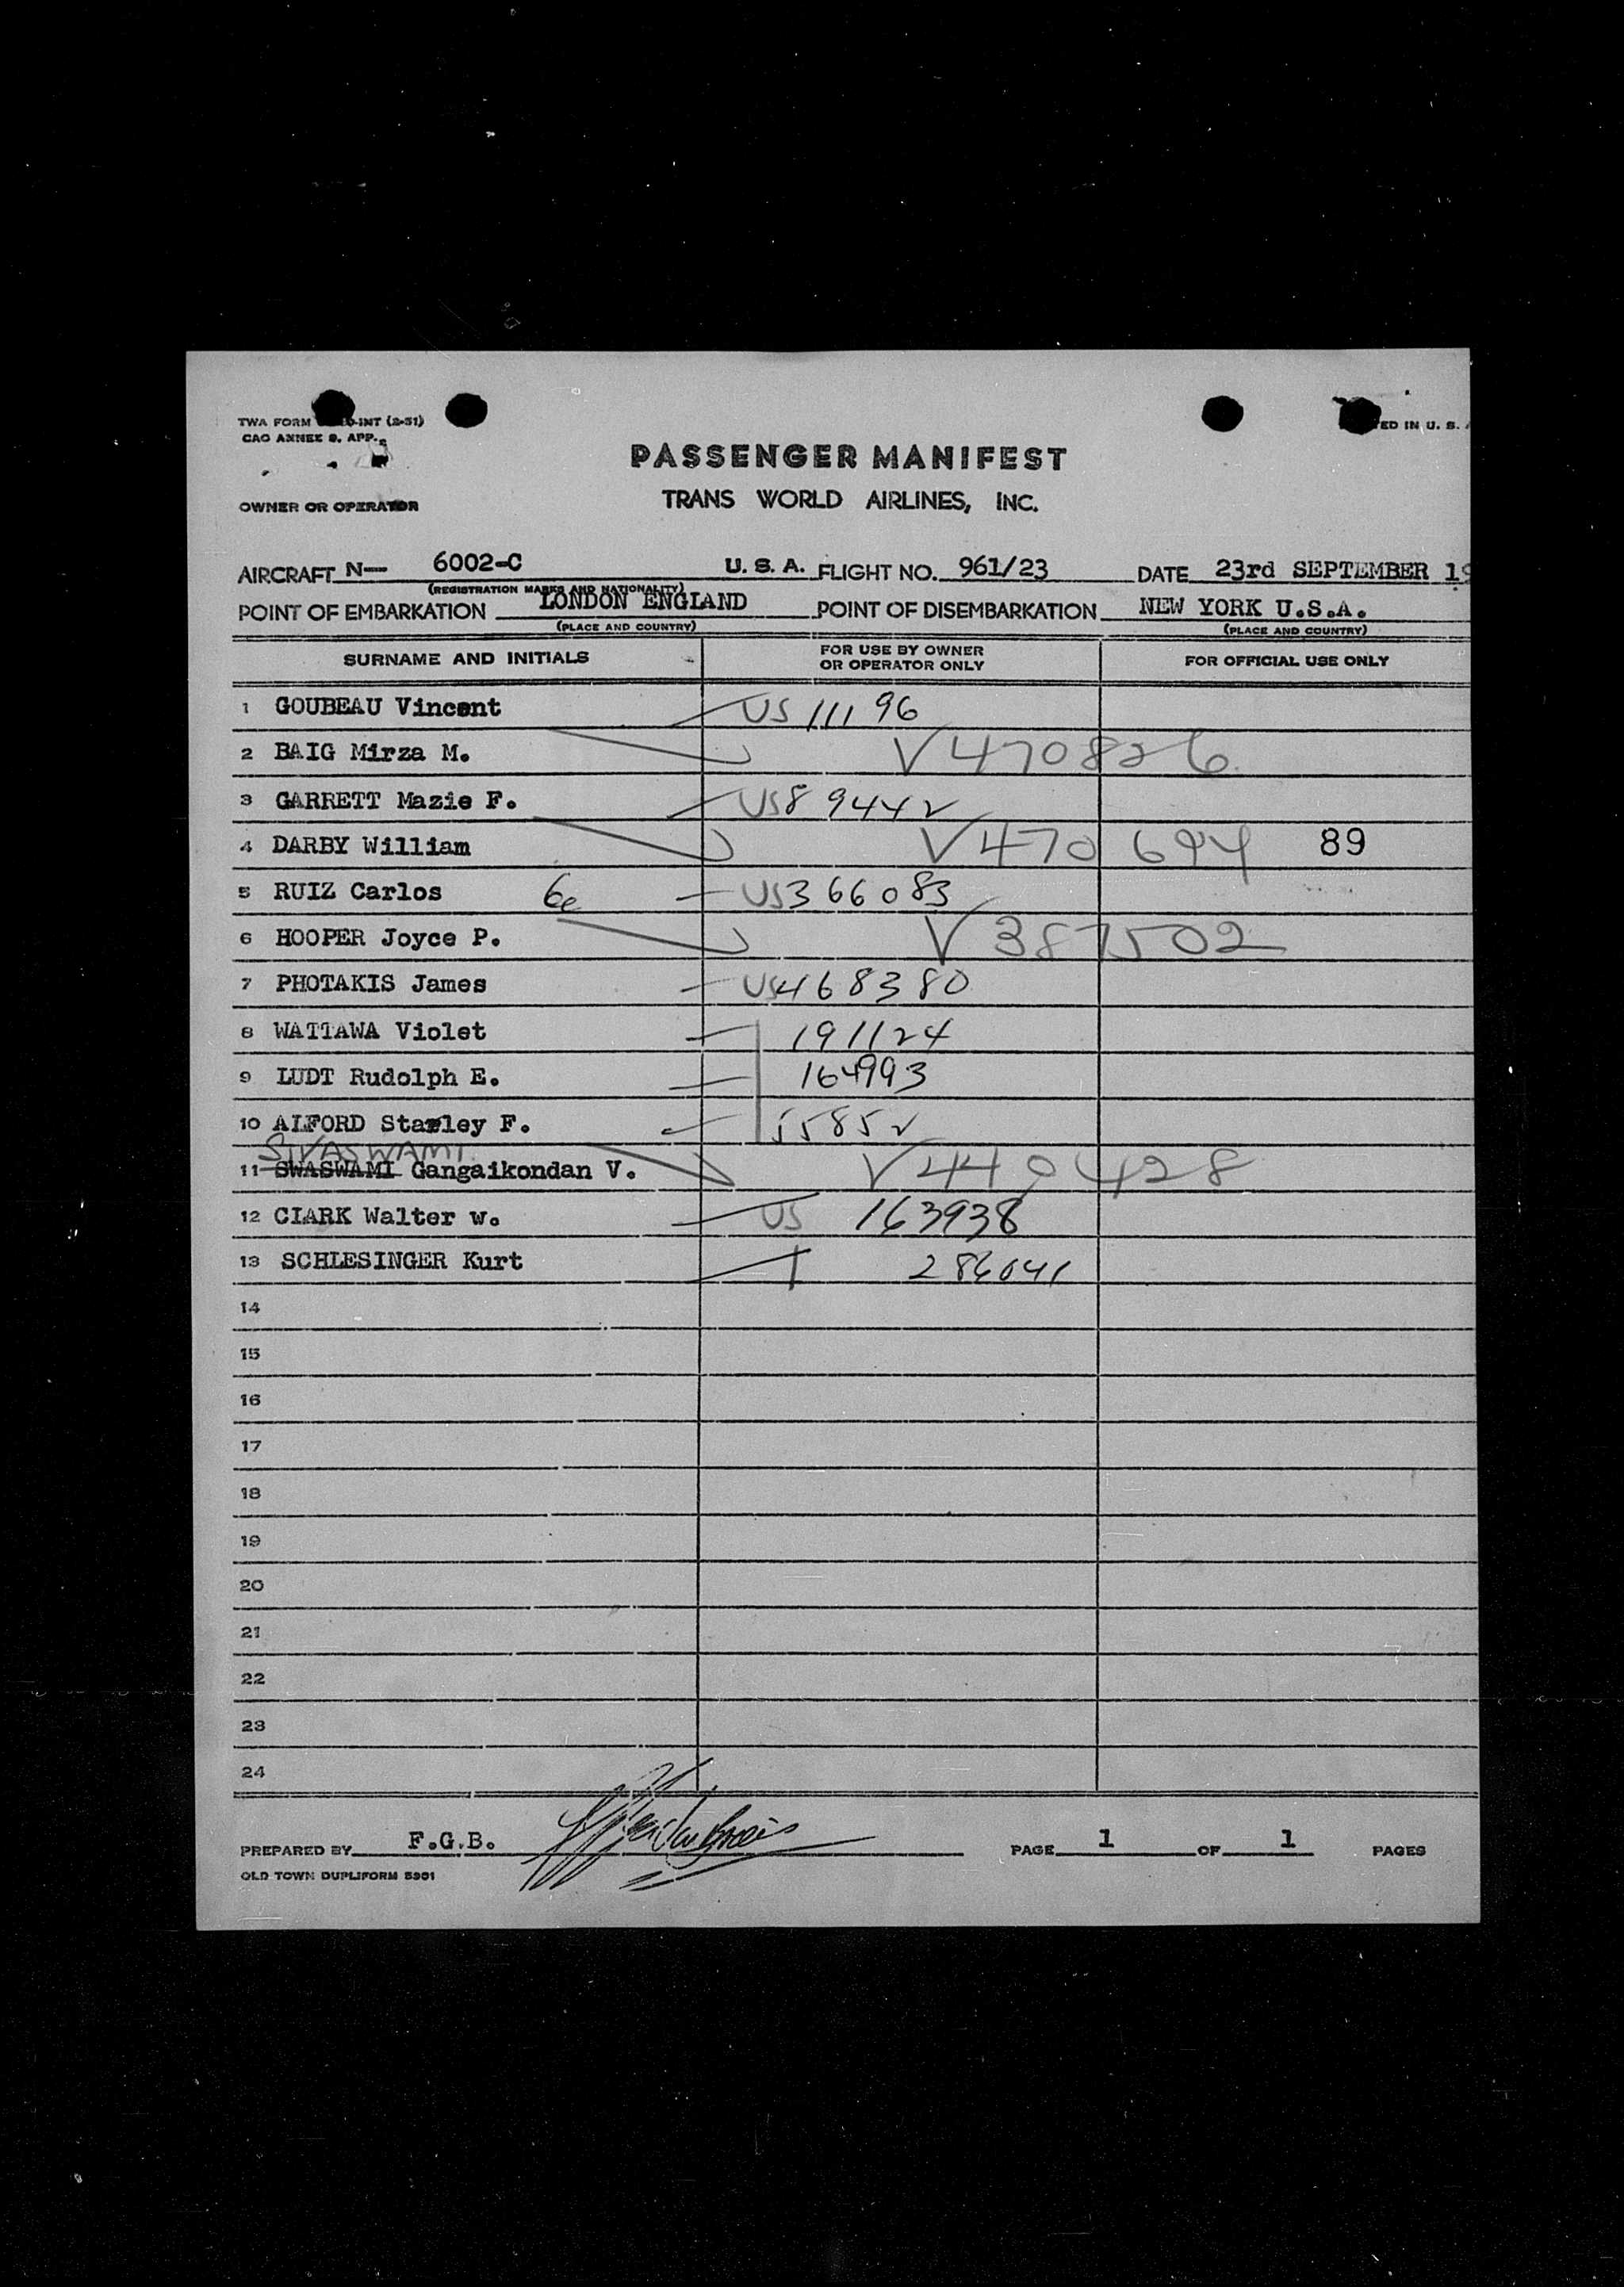 TWA FORM INT (2-51)
CAO ANNEX 9. APP.
ED IN U. S.
PASSENGER MANIFEST
OWNER OR OPERATOR
TRANS WORLD AIRLINES, INC.
AIRCRAFT N— 6002-C U. S. A. FLIGHT NO. 961/23 DATE 23rd SEPTEMBER 19
(REGISTRATION MARKS AND NATIONALITY)
POINT OF EMBARKATION LONDON ENGLAND POINT OF DISEMBARKATION NEW YORK U.S.A.
(PLACE AND COUNTRY) (PLACE AND COUNTRY)
SURNAME AND INITIALS FOR USE BY OWNER OR OPERATOR ONLY FOR OFFICIAL USE ONLY
1 GOUBEAU Vincent US 111 96
2 BAIG Mirza M. V 470826
3 GARRETT Mazie F. US 89442
4 DARBY William V 470 694 89
5 RUIZ Carlos US 366083
6 HOOPER Joyce P. V 387502
7 PHOTAKIS James US 468380
8 WATTAWA Violet 191124
9 LUDT Rudolph E. 164993
10 ALFORD Stanley F. 55852
SIVASWAMI
11 SWASWAMI Gangaikondan V. V 440428
12 CLARK Walter w. US 163938
13 SCHLESINGER Kurt 286041
14
15
16
17
18
19
20
21
22
23
24
PREPARED BY F.G.B. PAGE 1 OF 1 PAGES
OLD TOWN DUPLIFORM 5901